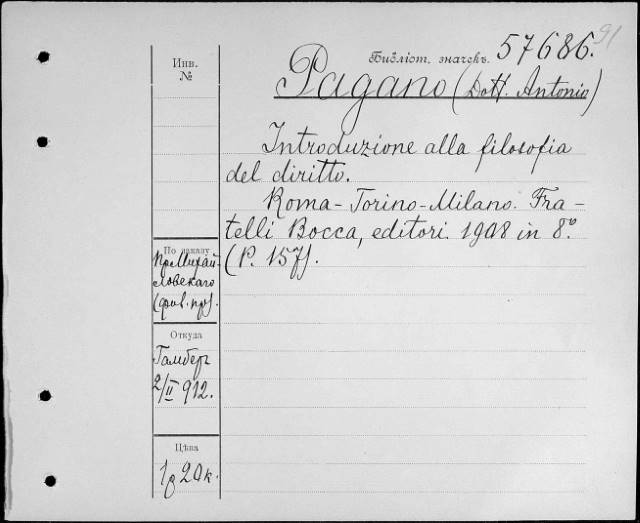 91
Библіот. значекъ. 57686.
Инв.
№
Pagano (Dott. Antonio)
Introduzione alla filosofia
del diritto.
Roma - Torino - Milano. Fra-
telli Bocca, editori. 1908 in 8°.
(P. 157).
По заказу
пр. Михай-
ловскаго
(фил. пр).
Откуда
Гамбер
2/II 912.
Цѣна
1р 20к.